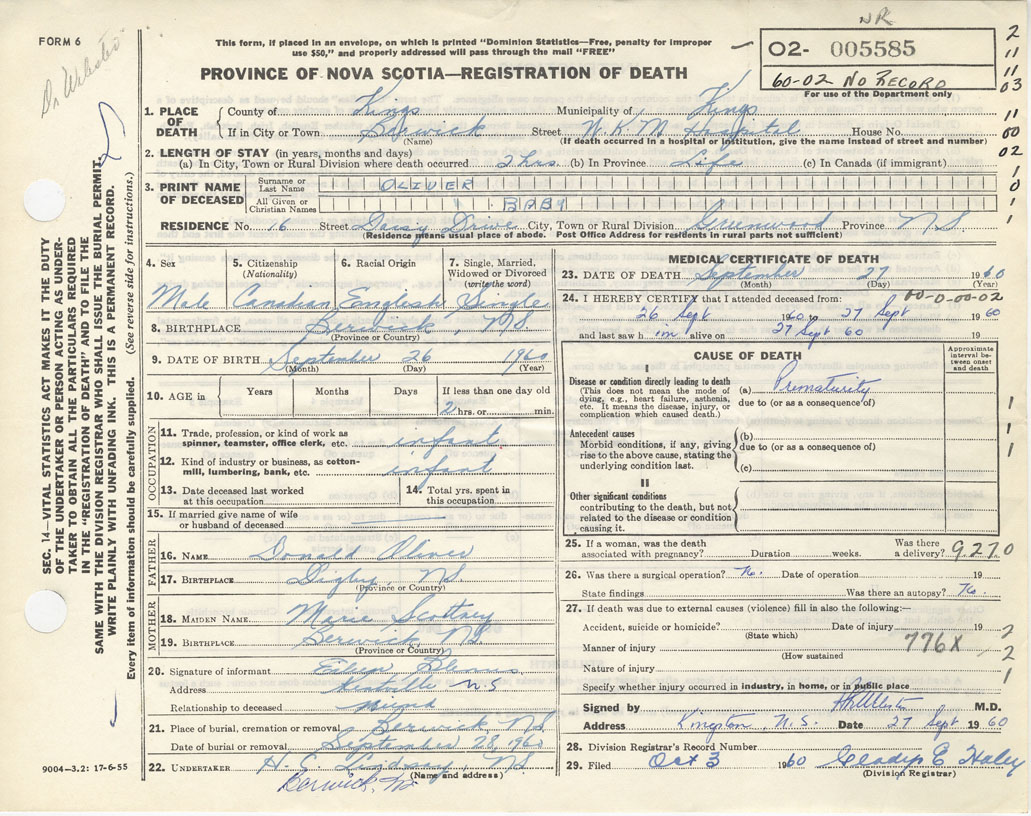 NR
FORM 6
This form, if placed in an envelope, on which is printed "Dominion Statistics—Free, penalty for improper
use $50," and properly addressed will pass through the mail "FREE"
O2- 005585
60-02 NO RECORD
For use of the Department only
PROVINCE OF NOVA SCOTIA—REGISTRATION OF DEATH
Dr Webster
1. PLACE OF DEATH County of Kings Municipality of Kings
If in City or Town Berwick Street W.K.M Hospital House No.
(Name) (If death occurred in a hospital or institution, give the name instead of street and number)
2. LENGTH OF STAY (in years, months and days)
(a) In City, Town or Rural Division where death occurred 2 hrs. (b) In Province Life (c) In Canada (if immigrant)
3. PRINT NAME OF DECEASED Surname or Last Name OLIVER
All Given or Christian Names BABY
RESIDENCE No. 16 Street Daisy Drive City, Town or Rural Division Greenwood Province N.S.
(Residence means usual place of abode. Post Office Address for residents in rural parts not sufficient)
4. Sex 5. Citizenship (Nationality) 6. Racial Origin 7. Single, Married, Widowed or Divorced (write the word)
Male Canadian English Single
8. BIRTHPLACE Berwick, N.S.
(Province or Country)
9. DATE OF BIRTH September 26 1960
(Month) (Day) (Year)
10. AGE in Years Months Days If less than one day old
2 hrs. or min.
OCCUPATION
11. Trade, profession, or kind of work as spinner, teamster, office clerk, etc. infant
12. Kind of industry or business, as cotton-mill, lumbering, bank, etc. infant
13. Date deceased last worked at this occupation 14. Total yrs. spent in this occupation
15. If married give name of wife or husband of deceased
FATHER
16. NAME Donald Oliver
17. BIRTHPLACE Digby N.S.
(Province or Country)
MOTHER
18. MAIDEN NAME Marie
19. BIRTHPLACE Berwick, NS
(Province or Country)
20. Signature of informant
Address Kentville N.S
Relationship to deceased friend
21. Place of burial, cremation or removal Berwick N.S
Date of burial or removal September 28, 1960
22. UNDERTAKER H. E. Lindsay NS
(Name and address)
Berwick, NS
MEDICAL CERTIFICATE OF DEATH
23. DATE OF DEATH September 27 1960
(Month) (Day) (Year)
00-0-00-02
24. I HEREBY CERTIFY that I attended deceased from:
26 Sept 1960 to 27 Sept 1960
and last saw him alive on 27 Sept 60 19
CAUSE OF DEATH
Approximate interval between onset and death
I
Disease or condition directly leading to death (a) Prematurity
(This does not mean the mode of dying, e.g., heart failure, asthenia, etc. It means the disease, injury, or complication which caused death.) due to (or as a consequence of)
Antecedent causes (b)
Morbid conditions, if any, giving rise to the above cause, stating the underlying condition last. due to (or as a consequence of)
(c)
II
Other significant conditions
contributing to the death, but not related to the disease or condition causing it.
25. If a woman, was the death associated with pregnancy? Duration weeks. Was there a delivery? 9270
26. Was there a surgical operation? No. Date of operation 19
State findings Was there an autopsy? No.
27. If death was due to external causes (violence) fill in also the following:—
Accident, suicide or homicide? Date of injury 19
(State which)
Manner of injury 776X
(How sustained)
Nature of injury
Specify whether injury occurred in industry, in home, or in public place
Signed by M.D.
Address Kingston, N.S. Date 27 Sept 1960
28. Division Registrar's Record Number
29. Filed Oct 3 1960 Gladys E Haley
(Division Registrar)
2
11
11
03
11
00
02
1
0
1
1
1
1
1
2
2
1
SEC. 14—VITAL STATISTICS ACT MAKES IT THE DUTY
OF THE UNDERTAKER OR PERSON ACTING AS UNDER-
TAKER TO OBTAIN ALL THE PARTICULARS REQUIRED
IN THE "REGISTRATION OF DEATH" AND TO FILE THE
SAME WITH THE DIVISION REGISTRAR WHO SHALL ISSUE THE BURIAL PERMIT.
WRITE PLAINLY WITH UNFADING INK. THIS IS A PERMANENT RECORD.
Every item of information should be carefully supplied. (See reverse side for instructions.)
9004-3.2: 17-6-55